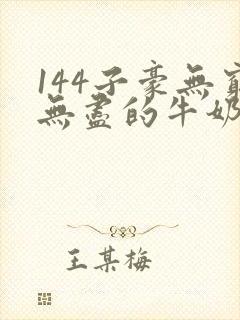 144子豪無窮
無盡的牛奶
王某梅